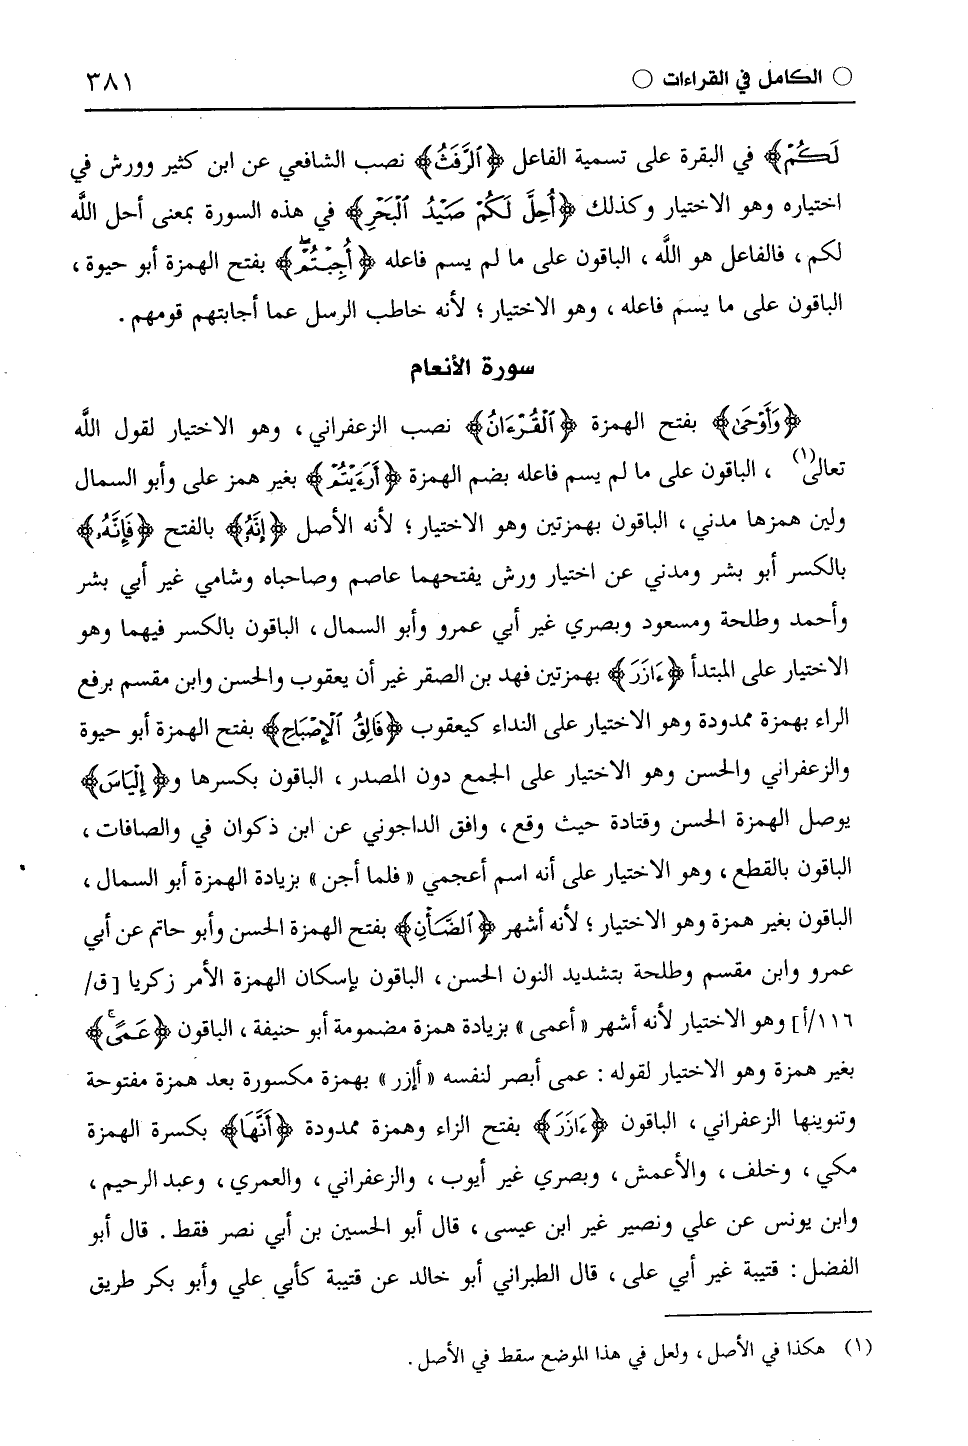 ○ الكامل في القراءات ○ ٣٨١
لَكُمْ﴾ في البقرة على تسمية الفاعل ﴿ٱلرَّفَثُ﴾ نصب الشافعي عن ابن كثير وورش في
اختياره وهو الاختيار وكذلك ﴿أُحِلَّ لَكُمْ صَيْدُ ٱلْبَحْرِ﴾ في هذه السورة بمعنى أحل اللَّه
لكم ، فالفاعل هو اللَّه ، الباقون على ما لم يسم فاعله ﴿أُجِبْتُمْ﴾ بفتح الهمزة أبو حيوة ،
الباقون على ما يسم فاعله ، وهو الاختيار ؛ لأنه خاطب الرسل عما أجابتهم قومهم .
سورة الأنعام
﴿وَأَوْحَىٰ﴾ بفتح الهمزة ﴿ٱلْقُرْءَانُ﴾ نصب الزعفراني ، وهو الاختيار لقول اللَّه
تعالى(١) ، الباقون على ما لم يسم فاعله بضم الهمزة ﴿أَرَءَيْتُمْ﴾ بغير همز على وأبو السمال
ولين همزها مدني ، الباقون بهمزتين وهو الاختيار ؛ لأنه الأصل ﴿إِنَّهُۥ﴾ بالفتح ﴿فَإِنَّهُۥ﴾
بالكسر أبو بشر ومدني عن اختيار ورش يفتحهما عاصم وصاحباه وشامي غير أبي بشر
وأحمد وطلحة ومسعود وبصري غير أبي عمرو وأبو السمال ، الباقون بالكسر فيهما وهو
الاختيار على المبتدأ ﴿ءَازَرَ﴾ بهمزتين فهد بن الصقر غير أن يعقوب والحسن وابن مقسم برفع
الراء بهمزة ممدودة وهو الاختيار على النداء كيعقوب ﴿فَالِقُ ٱلْإِصْبَاحِ﴾ بفتح الهمزة أبو حيوة
والزعفراني والحسن وهو الاختيار على الجمع دون المصدر ، الباقون بكسرها و﴿إِلْيَاسَ﴾
يوصل الهمزة الحسن وقتادة حيث وقع ، وافق الداجوني عن ابن ذكوان في والصافات ،
الباقون بالقطع ، وهو الاختيار على أنه اسم أعجمي « فلما أجن » بزيادة الهمزة أبو السمال ،
الباقون بغير همزة وهو الاختيار ؛ لأنه أشهر ﴿ٱلضَّأْنِ﴾ بفتح الهمزة الحسن وأبو حاتم عن أبي
عمرو وابن مقسم وطلحة بتشديد النون الحسن ، الباقون بإسكان الهمزة الأمر زكريا [ ق/
١١٦/أ ] وهو الاختيار لأنه أشهر « أعمى » بزيادة همزة مضمومة أبو حنيفة ، الباقون ﴿عَمًى﴾
بغير همزة وهو الاختيار لقوله : عمى أبصر لنفسه « أإزر » بهمزة مكسورة بعد همزة مفتوحة
وتنوينها الزعفراني ، الباقون ﴿ءَازَرَ﴾ بفتح الزاء وهمزة ممدودة ﴿أَنَّهَا﴾ بكسرة الهمزة
مكي ، وخلف ، والأعمش ، وبصري غير أيوب ، والزعفراني ، والعمري ، وعبد الرحيم ،
وابن يونس عن علي ونصير غير ابن عيسى ، قال أبو الحسين بن أبي نصر فقط . قال أبو
الفضل : قتيبة غير أبي على ، قال الطبراني أبو خالد عن قتيبة كأبي علي وأبو بكر طريق
(١) هكذا في الأصل ، ولعل في هذا الموضع سقط في الأصل .